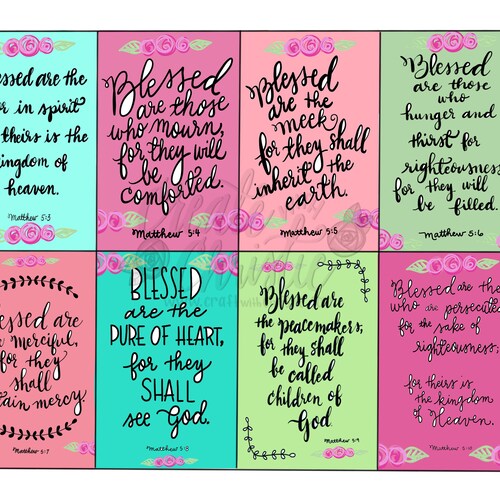 essed are the
r in spirit
theirs is the
ingdom of
heaven.
Matthew 5:3
Blessed
are those
who mourn,
for they will
be
comforted.
Matthew 5:4
Blessed
are the
meek
for they shall
inherit the
earth.
Matthew 5:5
Blessed
are those
who
hunger and
thirst for
righteousness
for they will
be filled.
Matthew 5:6
essed are
merciful,
for they
shall
tain mercy.
Matthew 5:7
BLESSED
are the
PURE OF HEART,
for they
SHALL
see God.
Matthew 5:8
Blessed are
the peacemakers;
for they shall
be called
children of
God
Matthew 5:9
Blessed are the
who are persecuted
for the sake of
righteousness;
for theirs is
the kingdom
of Heaven.